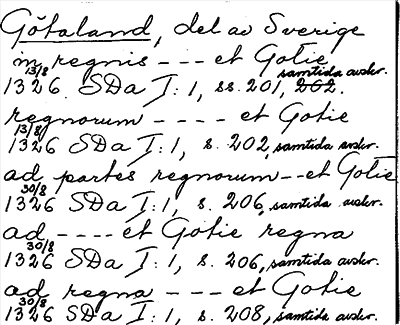 Götaland, del av Sverige
in regnis --- et Gotie
13/8 1326 SDa I:1, ss. 201, 202. samtida avskr.
regnorum ---- et Gotie
13/8 1326 SDa I:1, s. 202, samtida avskr.
ad partes regnorum -- et Gotie
30/8 1326 SDa I:1, s. 206, samtida avskr.
ad ---- et Gotie regna
30/8 1326 SDa I:1, s. 206, samtida avskr.
ad regna --- et Gotie
30/8 1326 SDa I:1, s. 208, samtida avskr.